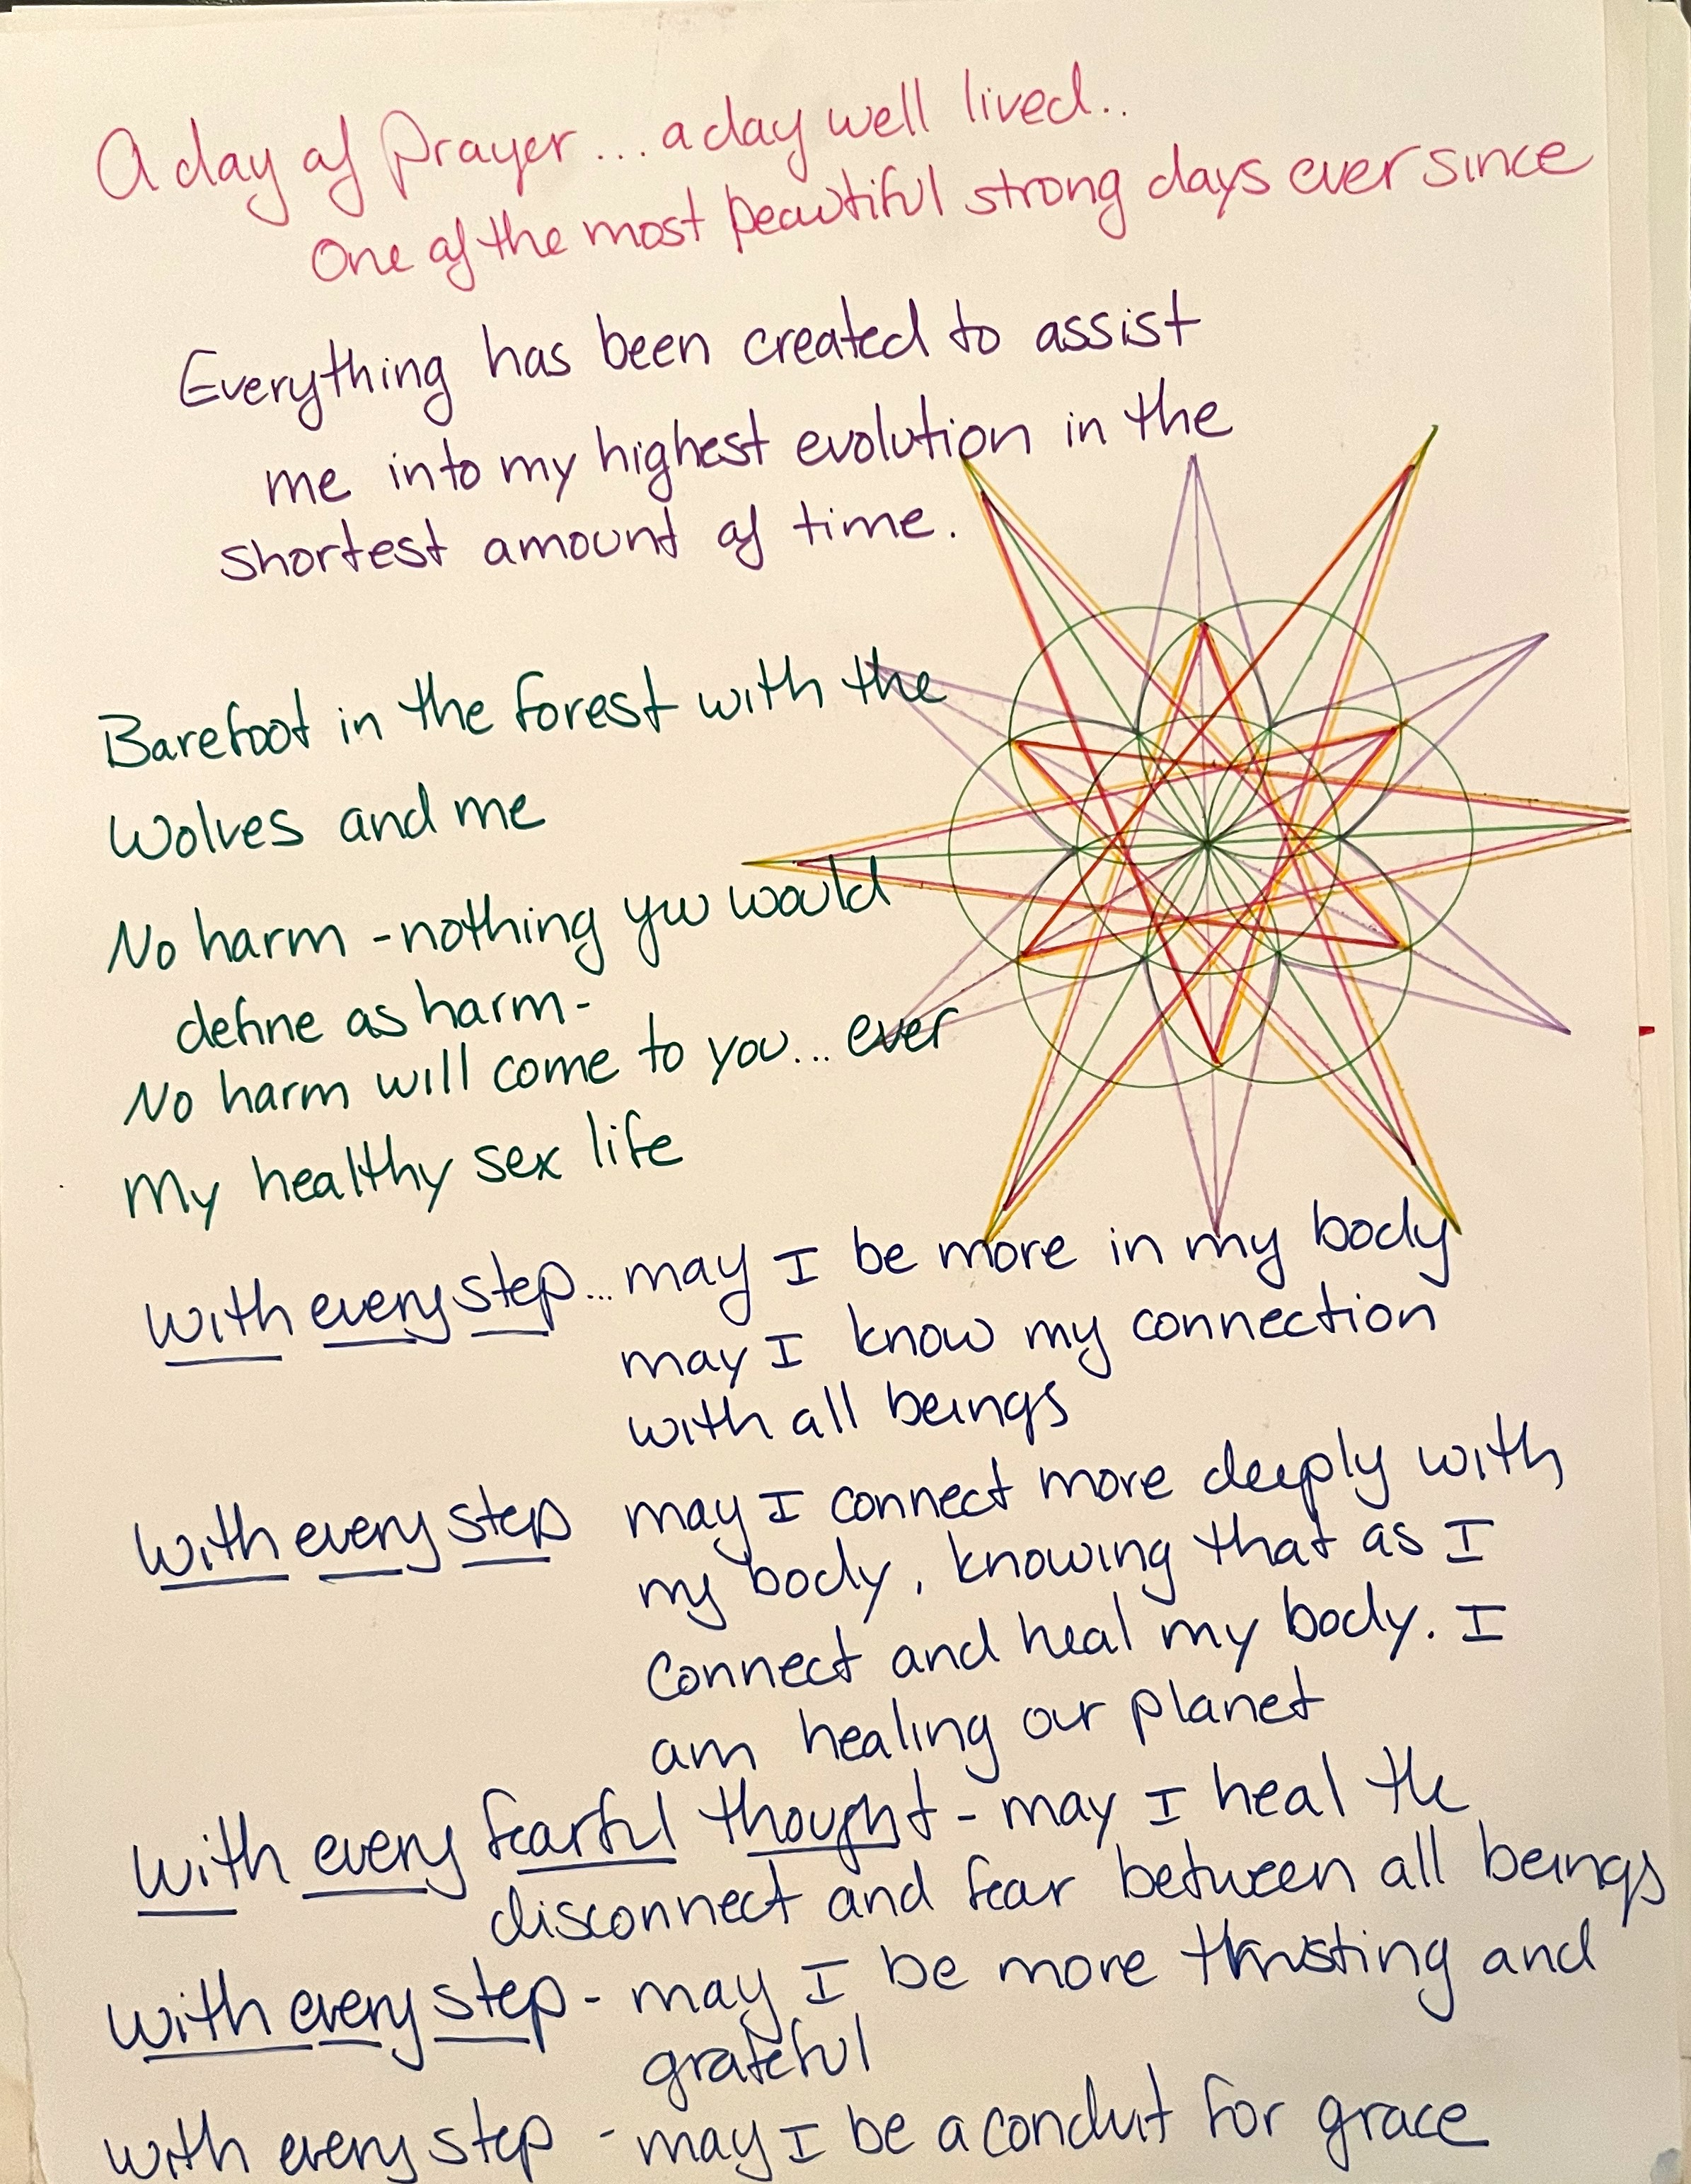 A day of Prayer... a day well lived..
One of the most beautiful strong days ever since
Everything has been created to assist
me into my highest evolution in the
shortest amount of time.
Barefoot in the forest with the
Wolves and me
No harm - nothing you would
define as harm -
No harm will come to you... ever
My healthy sex life
with every step... may I be more in my body
may I know my connection
with all beings
with every step may I connect more deeply with
my body, knowing that as I
connect and heal my body. I
am healing our planet
with every fearful thought - may I heal the
disconnect and fear between all beings
with every step - may I be more trusting and
grateful
with every step - may I be a conduit for grace